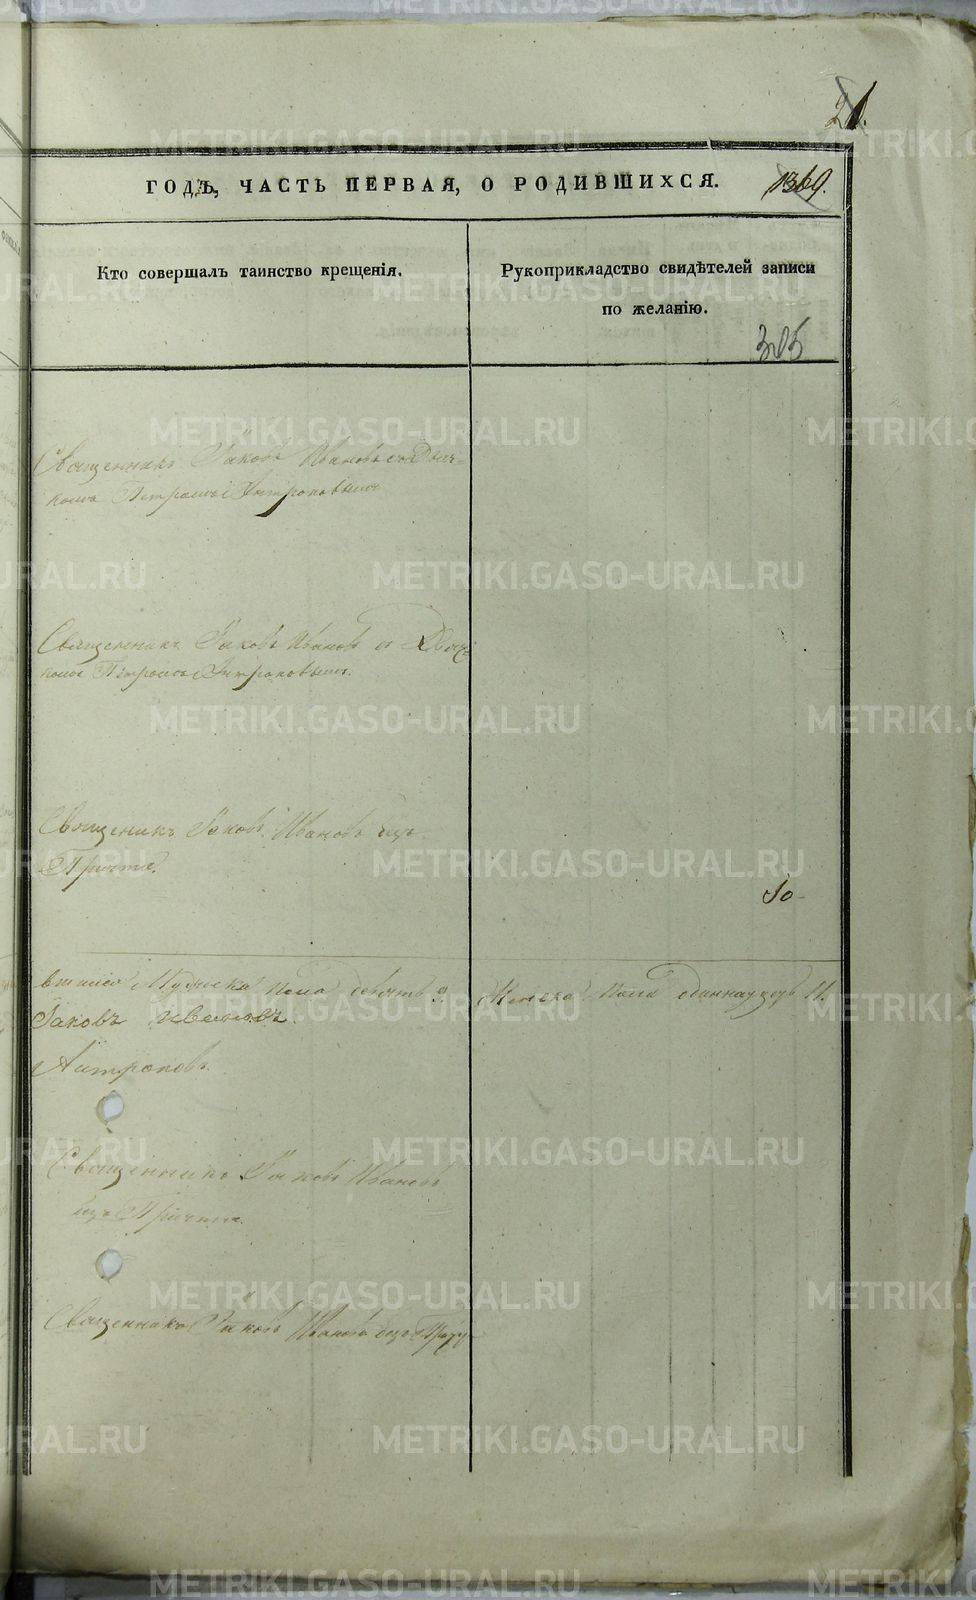 21.
ГОДЪ, ЧАСТЬ ПЕРВАЯ, О РОДИВШИХСЯ. 1369.
Кто совершалъ таинство крещенія.
Рукоприкладство свидѣтелей записи
по желанію.
305
Священникъ Іаковъ Ивановъ съ Дьяч-
комъ Петромъ Антроповымъ
Священникъ Іаковъ Ивановъ съ Дьяч-
комъ Петромъ Антроповымъ.
Священикъ Іаковъ Ивановъ безъ
Причта.
10
Мужеска пола девять 9. Женска пола одиннадцать 11.
Іаковъ Ивановъ.
Антроповъ.
Священникъ Іаковъ Ивановъ
безъ Причта.
Священникъ Іаковъ Ивановъ безъ
METRIKI.GASO-URAL.RU